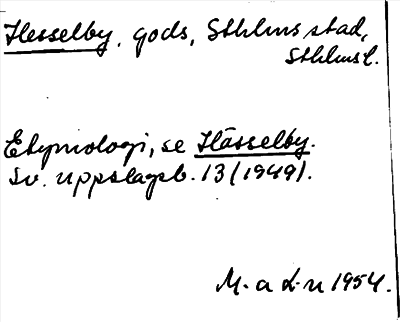 Hesselby, gods, Sthlms stad,
Sthlms l.
Etymologi, se Hässelby.
Sv. uppslagsb. 13 (1949).
M. a L-n 1954.